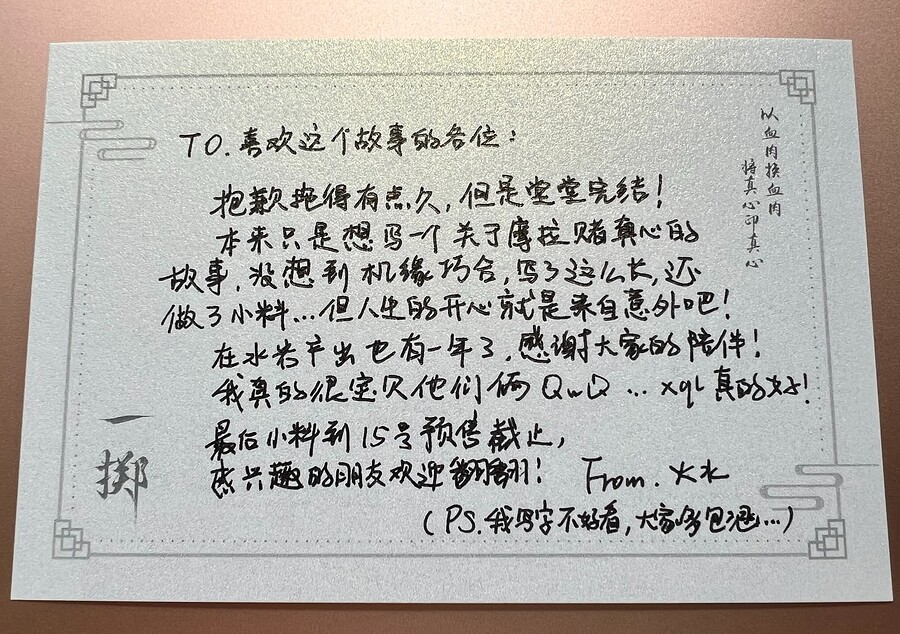 TO.喜欢这个故事的各位：
抱歉拖得有点久，但是堂堂完结！
本来只是想写一个关于摩拉赌真心的
故事，没想到机缘巧合，写了这么长，还
做了小料...但人生的开心就是来自意外吧！
在水岩产出也有一年了，感谢大家的陪伴！
我真的很宝贝他们俩QwQ...xql真的好！
最后小料到15号预售截止，
感兴趣的朋友欢迎翻翻！ From.大水
（PS.我写字不好看，大家多包涵...）
以血肉换血肉
将真心印真心
一掷